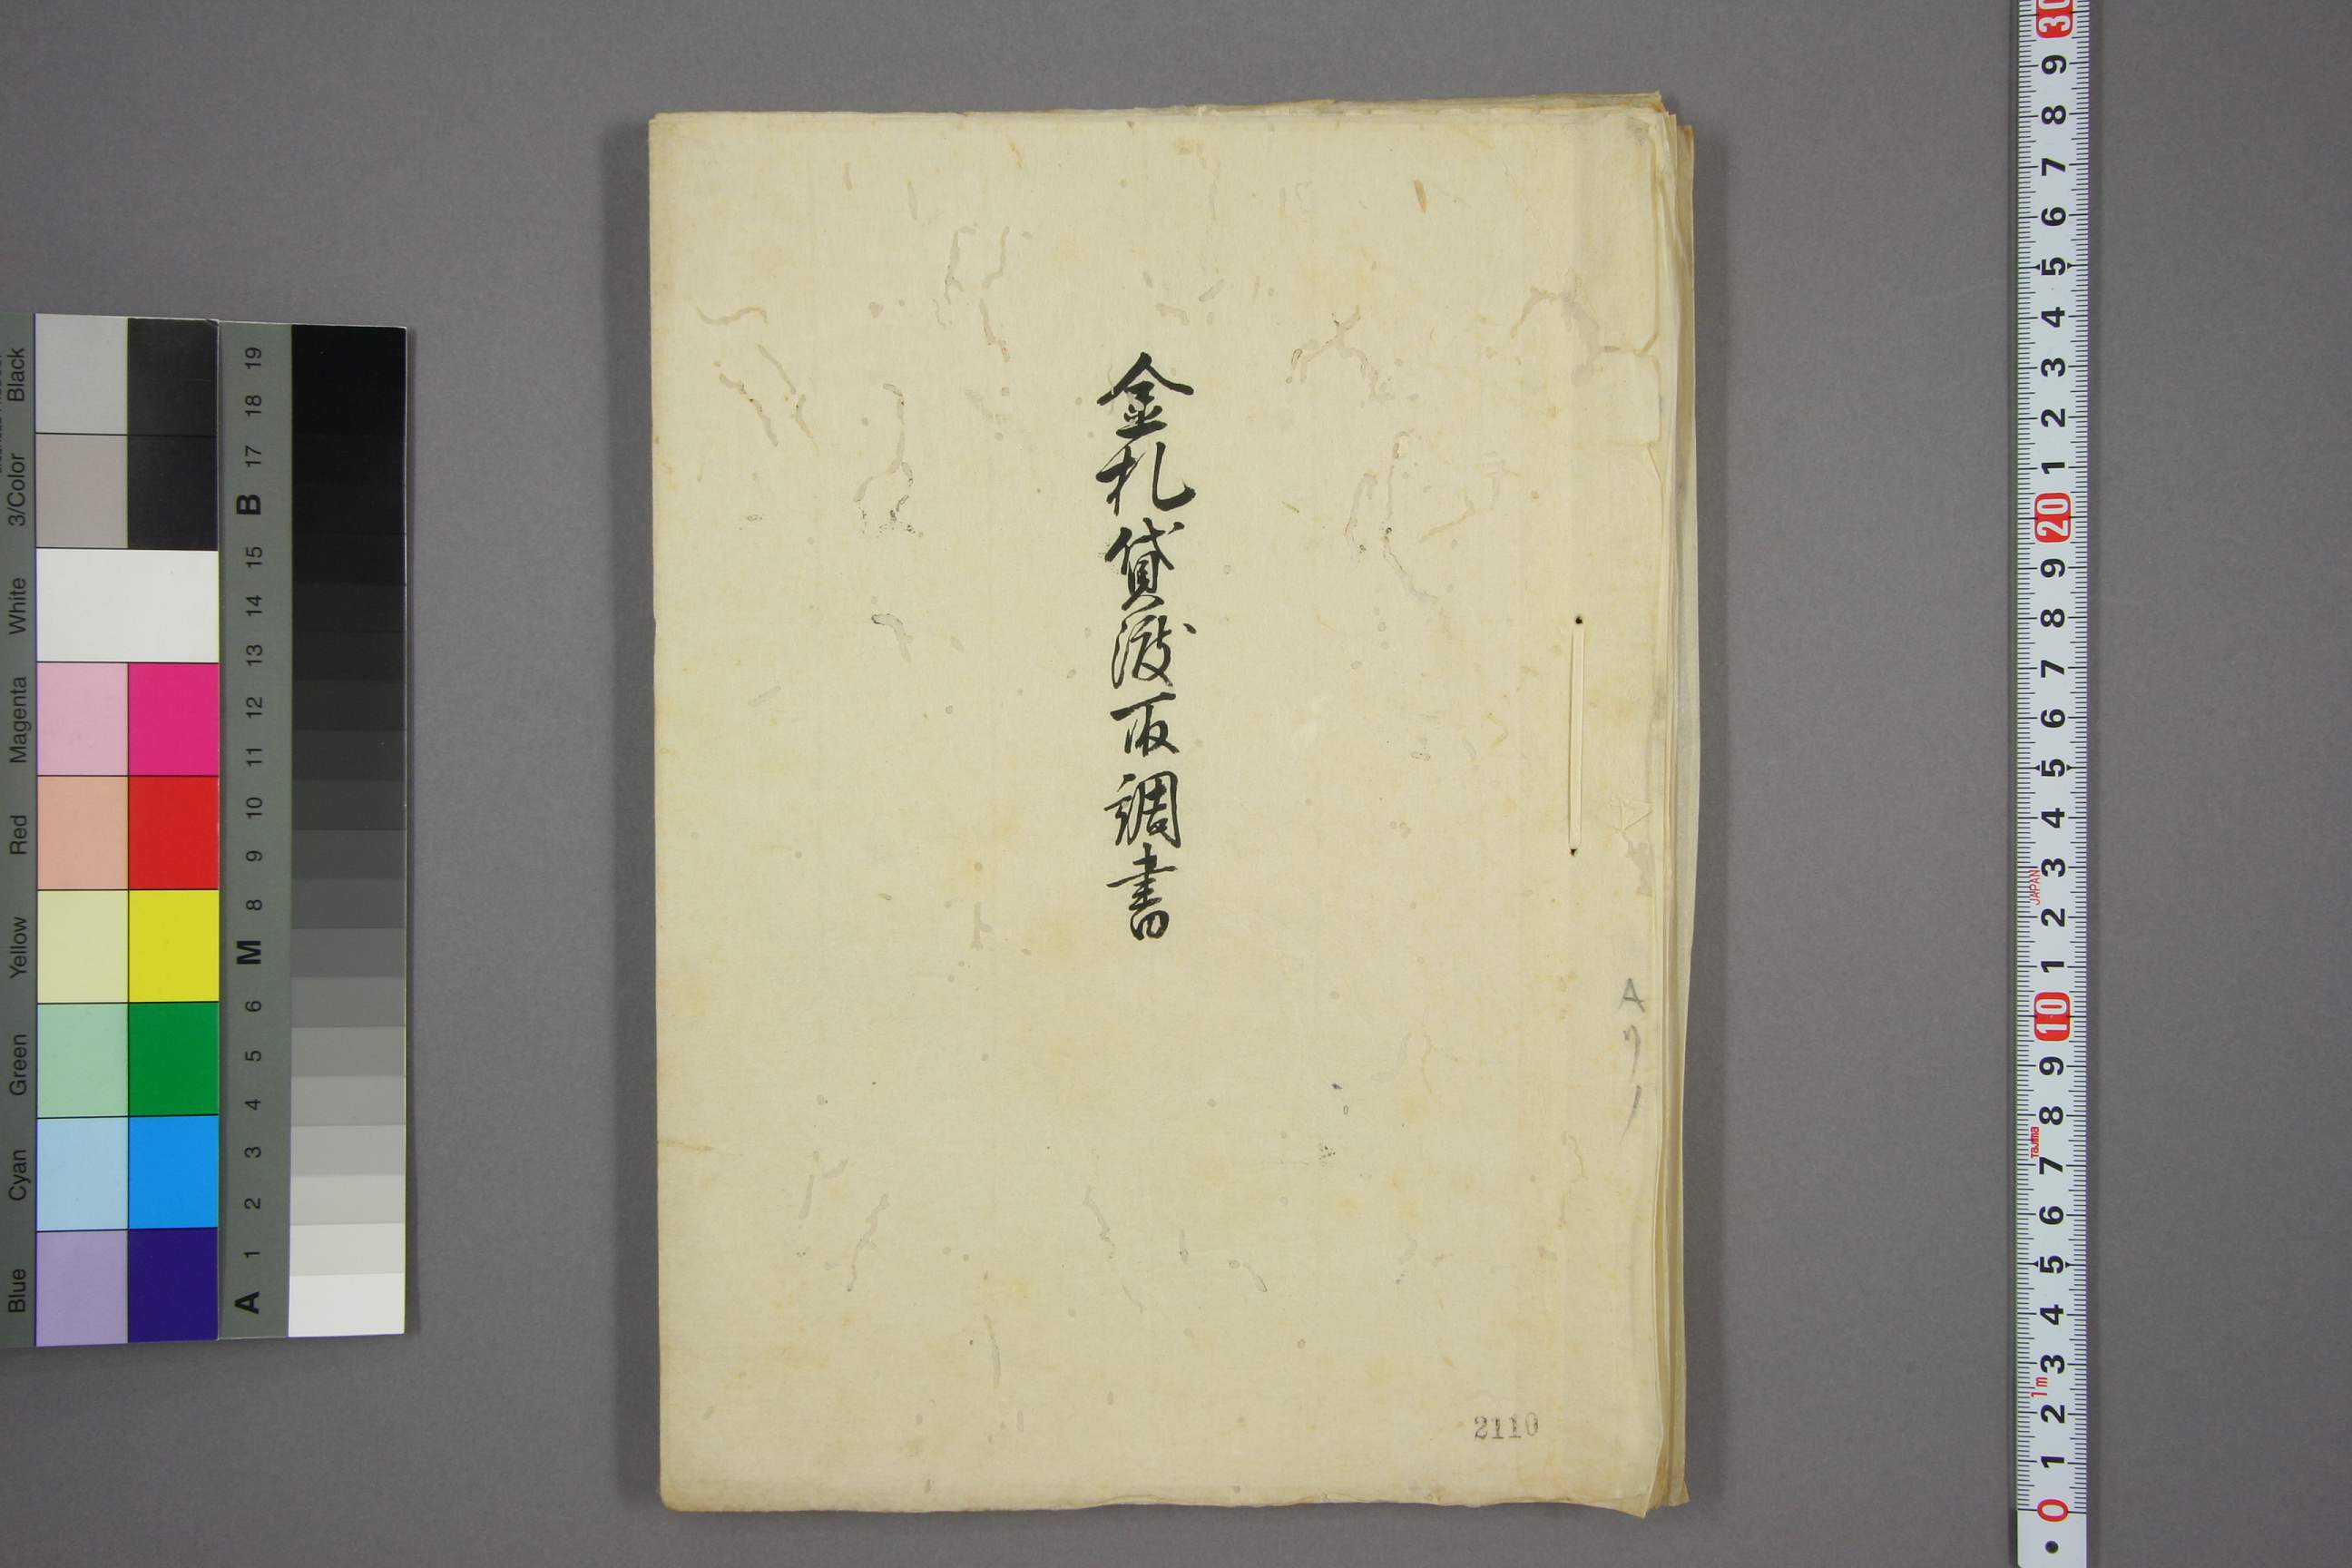 金札貸渡取調書
2110
Blue Cyan Green Yellow Red Magenta White 3/Color Black
A 1 2 3 4 5 6 M 8 9 10 11 12 13 14 15 B 17 18 19
0 1 2 3 4 5 6 7 8 9 10 1 2 3 4 5 6 7 8 9 20 1 2 3 4 5 6 7 8 9 30
1m
Tajima
JAPAN